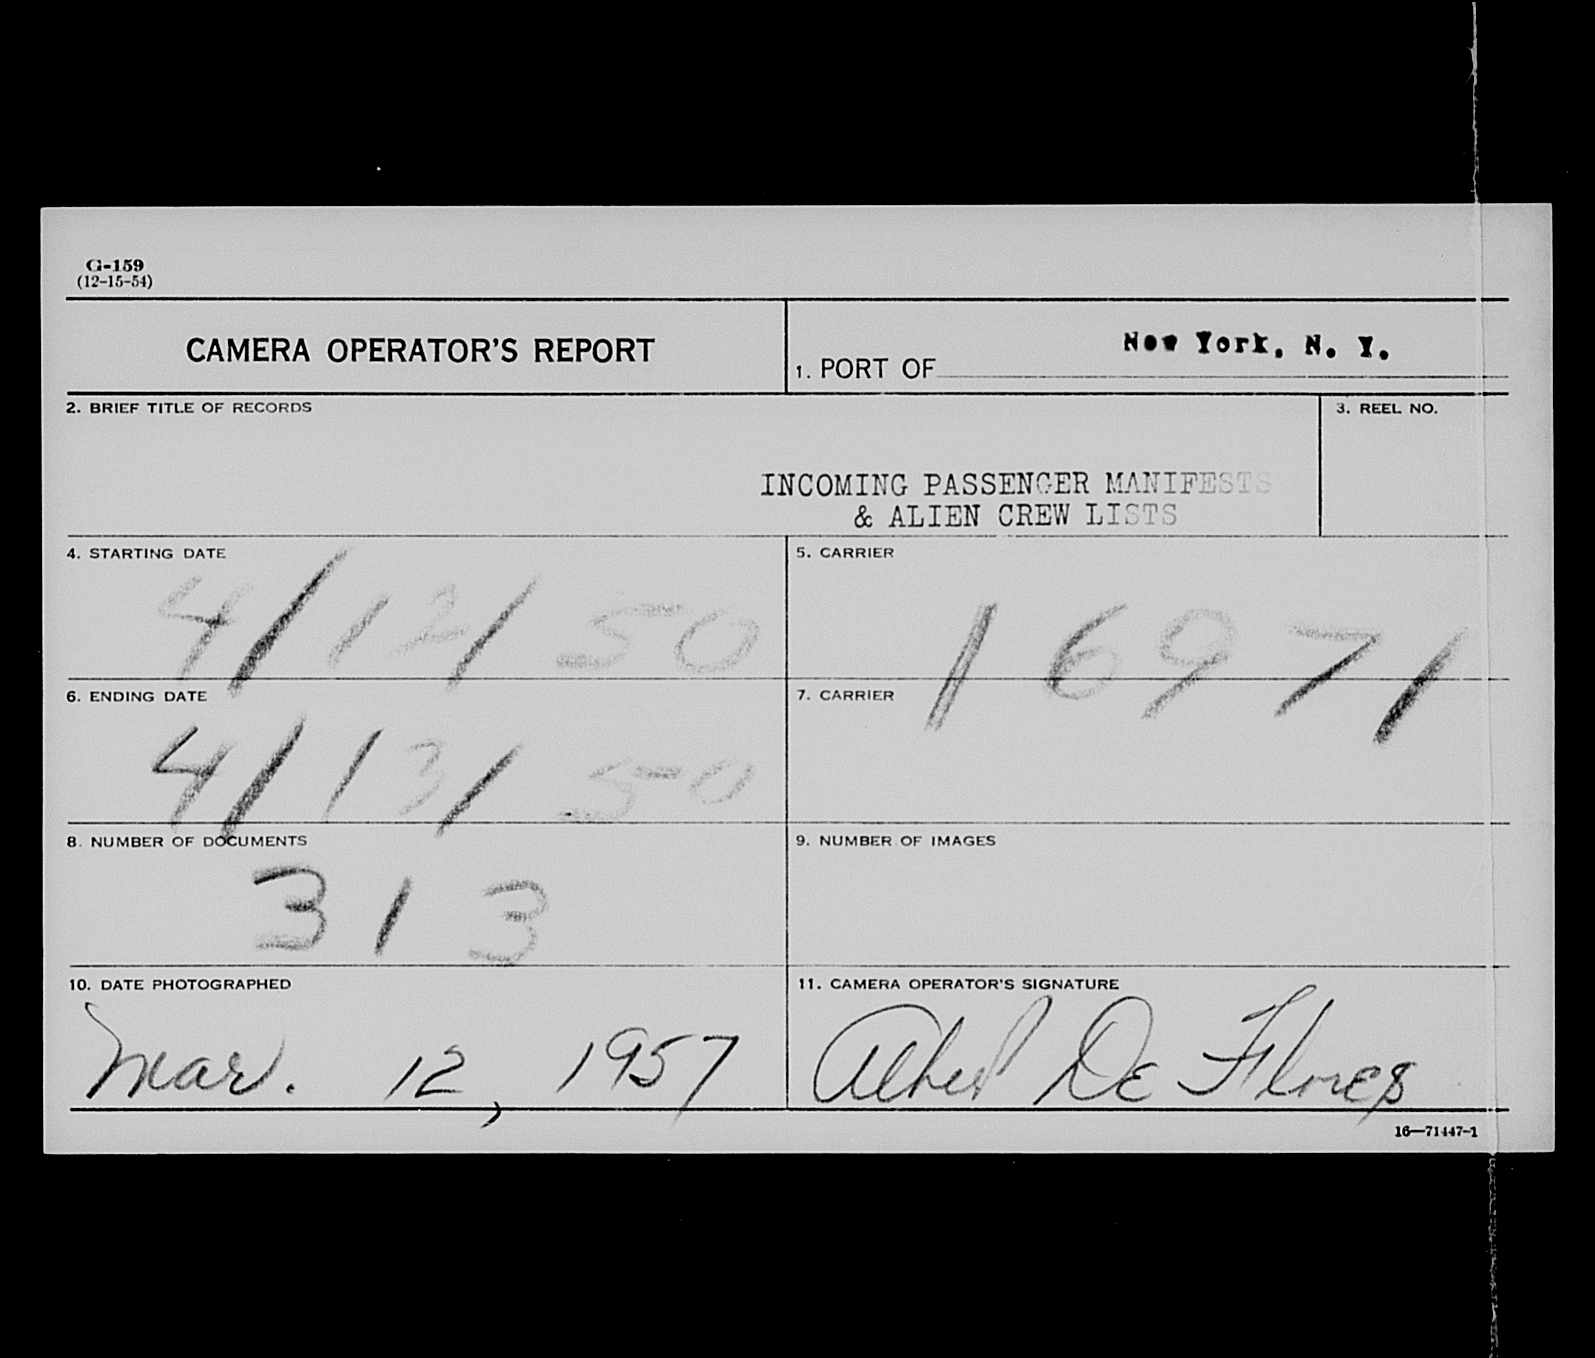 G-159
(12-15-54)
CAMERA OPERATOR'S REPORT
1. PORT OF New York, N. Y.
2. BRIEF TITLE OF RECORDS
3. REEL NO.
INCOMING PASSENGER MANIFESTS
& ALIEN CREW LISTS
4. STARTING DATE
4/12/50
5. CARRIER
16971
6. ENDING DATE
4/13/50
7. CARRIER
8. NUMBER OF DOCUMENTS
313
9. NUMBER OF IMAGES
10. DATE PHOTOGRAPHED
Mar. 12, 1957
11. CAMERA OPERATOR'S SIGNATURE
Albert De Flores
16—71447-1